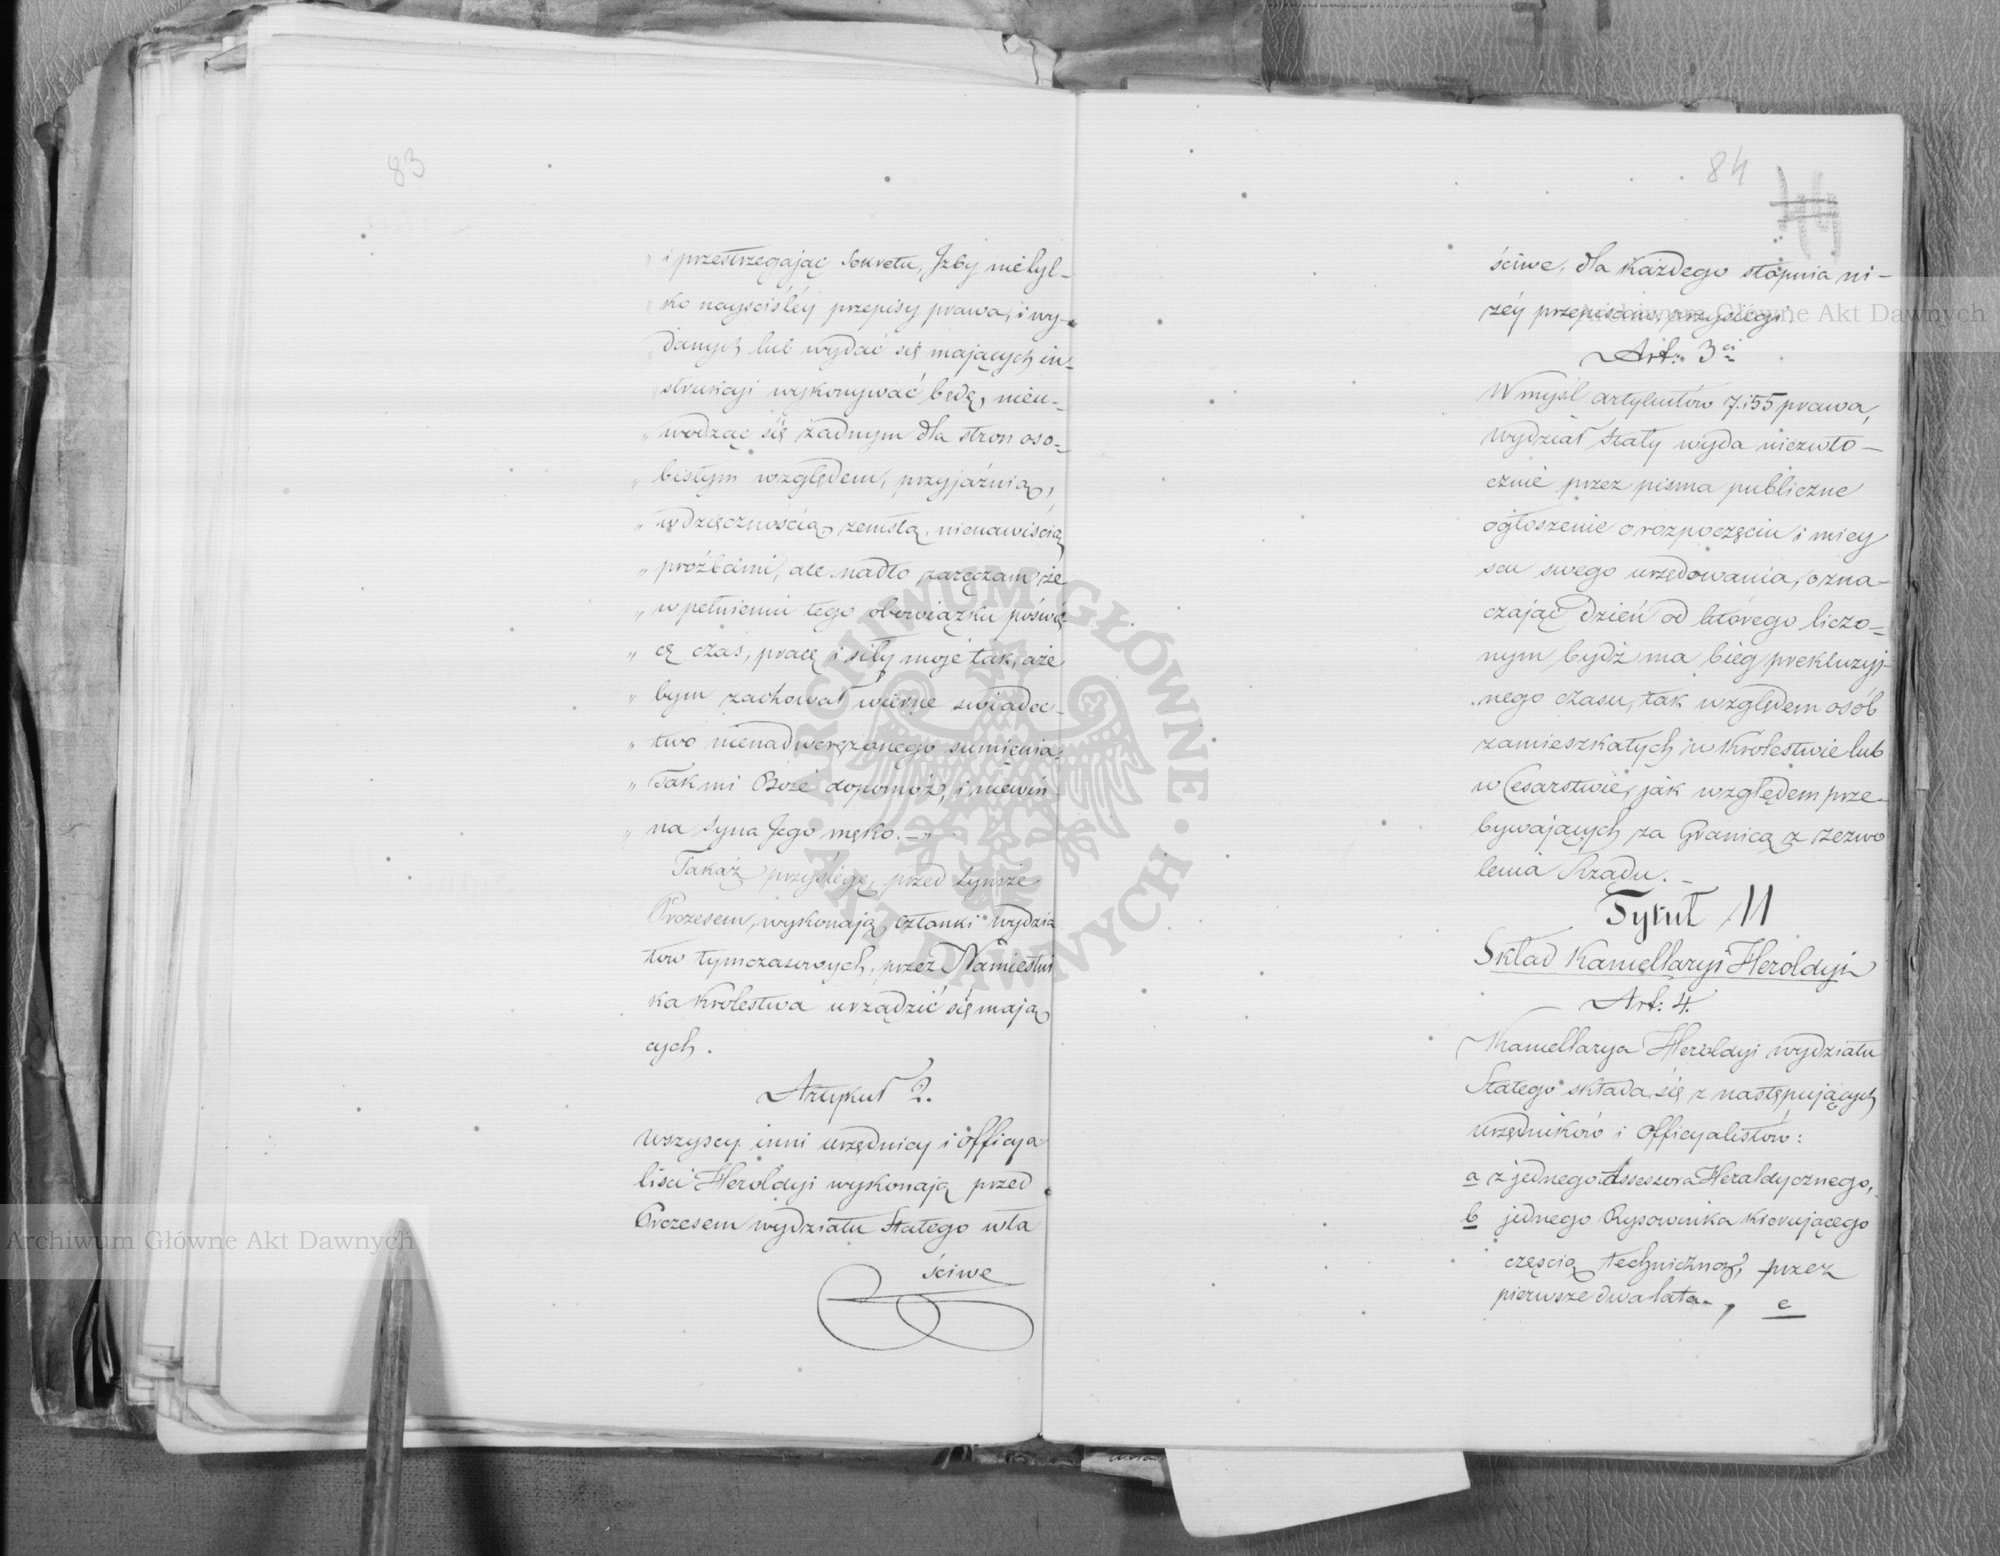 83
„ i przestrzegając sekretu, Jzby nietyl-
„ ko nayściśléy przepisy prawa, i wy-
danych lub wydać się maiących in-
strukcyi wykonywać będę, nieu-
„ wodząc się żadnym dla stron oso-
„ bistym względem, przyjaźnią,
„ wdzięcznością, zemstą, nienawiścią
„ proźbami, ale nadto zaręczam że
„ w pełnieniu tego obowiązku poświę
„ cę czas, pracę i siły moje tak, aże
„ bym zachował wierne świadec-
„ two nienadwerężonego sumienia,
„ Tak mi Boże dopomóż, i niewin
„ na Syna Jego męko. — „
Takąż przysięgę, przed tymże
Prezesem, wykonają członki wydzia
łów tymczasowych, przez Namiestni
ka Królestwa urządzić się mają
cych.
Artykuł 2.
Wszyscy inni urzędnicy i officya
liści Heroldyi wykonają przed
Prezesem wydziału Stałego wła
ściwe
84
ściwe, dla każdego stopnia ni-
żéy przepisane przysięgi.
Art: 3ci
W myśl artykułów 7. i 55 prawa,
Wydział Stały wyda niezwło-
cznie przez pisma publiczne
ogłoszenie o rozpoczęciu i miey
scu swego urzędowania, ozna-
czając dzień od którego liczo-
nym bydź ma bieg prekluzyj-
nego czasu, tak względem osób
zamieszkałych w Królestwie lub
w Cesarstwie, jak względem prze-
bywających za Granicą z zezwo
lenia Rządu. —
Tytuł II
Skład Kancellaryi Heroldyi
Art: 4.
Kancellarya Heroldyi wydziału
Stałego składa się z następujących
urzędników i officyalistów:
a z jednego Assessora Heraldycznego,
b jednego Rysownika kierującego
częścią techniczną, przez
pierwsze dwa lata -, c
Archiwum Główne Akt Dawnych
Archiwum Główne Akt Dawnych
ARCHIWUM GŁÓWNE · AKT DAWNYCH ·